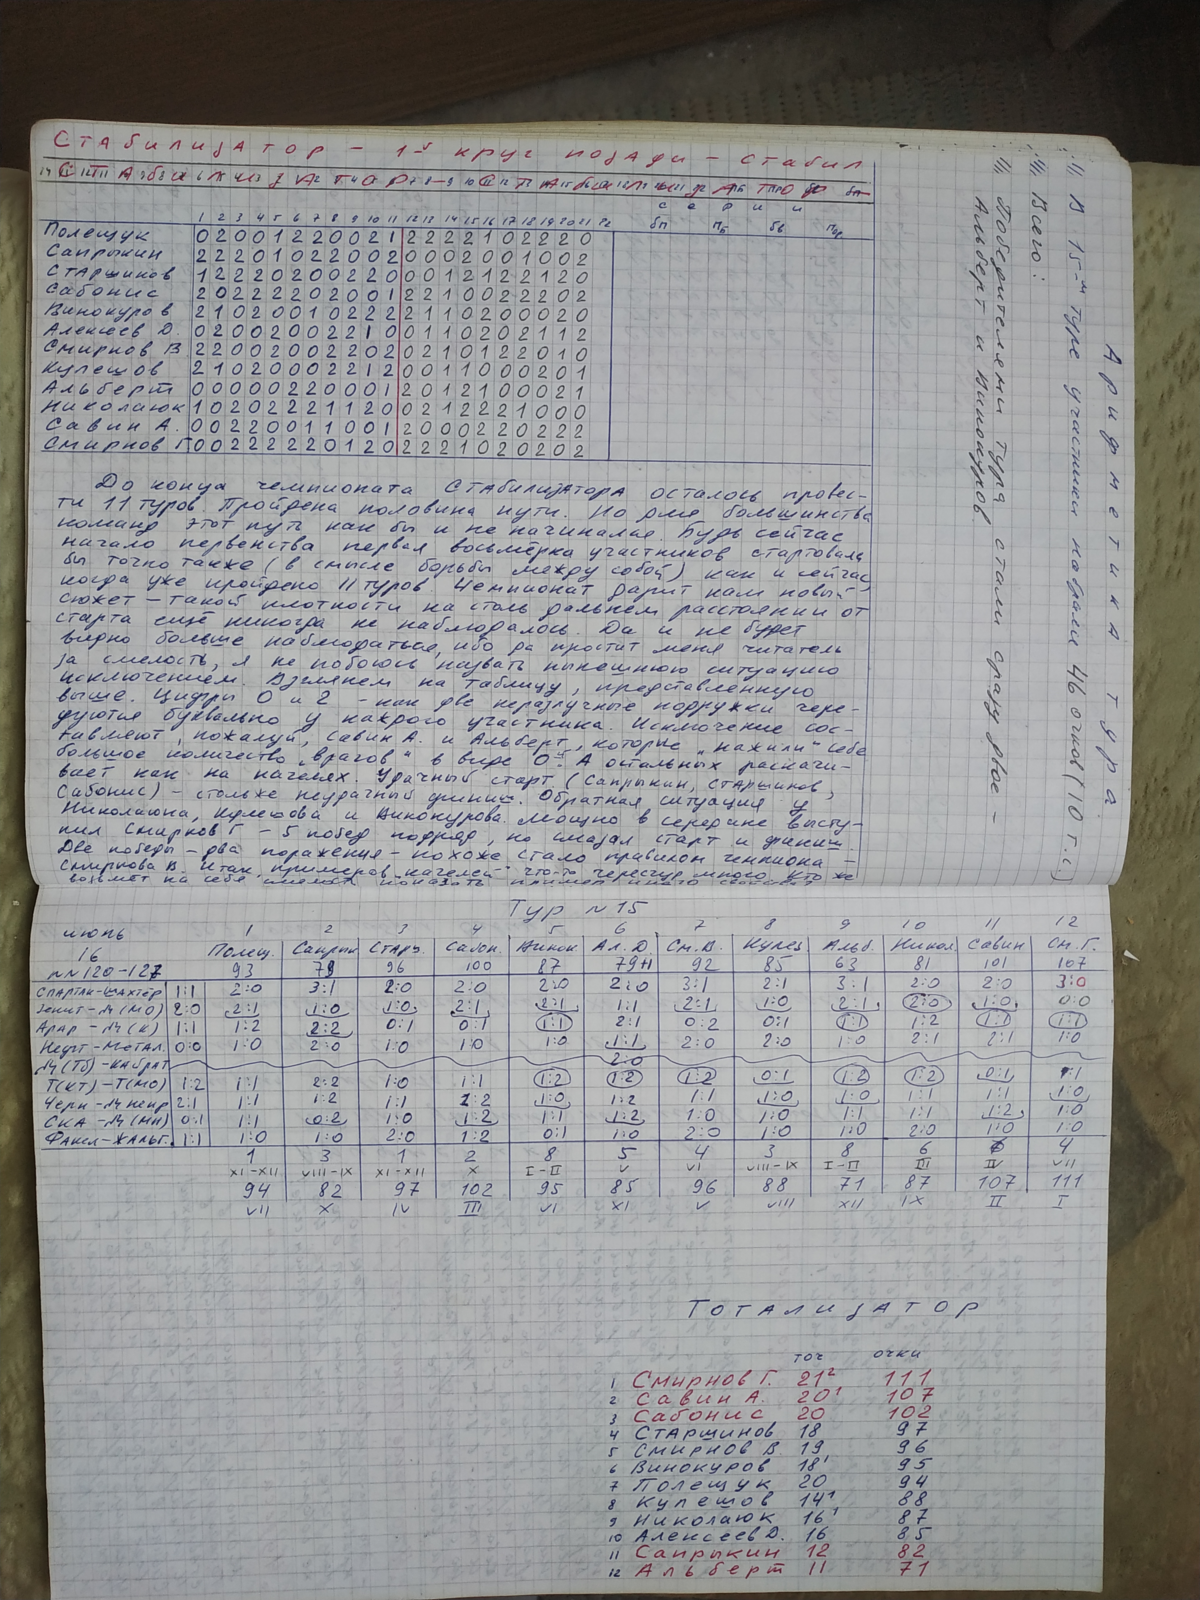 Стабилизатор – 1й круг позади – стабил
Стабилизатор – Стабилизатор –
серии
1 2 3 4 5 6 7 8 9 10 11 12 13 14 15 16 17 18 19 20 21 22 бп пб бв пор
Полещук 0 2 0 0 1 2 2 0 0 2 1 2 2 2 2 1 0 2 2 2 0
Сапрыкин 2 2 2 0 1 0 2 2 0 0 2 0 0 0 2 0 0 1 0 0 2
Старшинов 1 2 2 2 0 2 0 0 2 2 0 0 0 1 2 1 2 2 1 2 0
Сабонис 2 0 2 2 2 2 0 2 0 0 1 2 2 1 0 0 2 2 2 0 2
Винокуров 2 1 0 2 0 0 1 0 2 2 2 2 1 1 0 2 0 0 0 2 0
Алексеев Д. 0 2 0 0 2 0 0 2 2 1 0 0 1 1 0 2 0 2 1 1 2
Смирнов В 2 2 0 0 2 0 0 2 2 0 2 0 2 1 0 1 2 2 0 1 0
Кулешов 2 1 0 2 0 0 0 2 2 1 2 0 0 1 1 0 0 0 2 0 1
Альберт 0 0 0 0 0 2 2 0 0 0 1 2 0 1 2 1 0 0 0 2 1
Николаюк 1 0 2 0 2 2 2 1 1 2 0 0 2 1 2 2 2 1 0 0 0
Савин А. 0 0 2 2 0 0 1 1 0 0 1 2 0 0 0 2 2 0 2 2 2
Смирнов Г. 0 0 2 2 2 2 2 0 1 2 0 2 2 2 1 0 2 0 2 0 2
До конца чемпионата Стабилизатора осталось провес-
ти 11 туров. Пройдена половина пути. Но для большинства
команд этот путь как бы и не начинался. Будь сейчас
начало первенства первая восьмёрка участников стартовала
бы точно также (в смысле борьбы между собой) как и сейчас,
когда уже пройдено 11 туров. Чемпионат дарит нам новый
сюжет – такой плотности на столь дальнем расстоянии от
старта ещё никогда не наблюдалось. Да и не будет
видно больше наблюдаться, ибо да простит меня читатель
за смелость, я не побоюсь назвать нынешнюю ситуацию
исключением. Взглянем на таблицу, представленную
выше. Цифры 0 и 2 – как две неразлучные подружки чере-
дуются буквально у каждого участника. Исключение сос-
тавляют, пожалуй, Савин А. и Альберт, которые „нажили" себе
большое количество „врагов" в виде 0й. А остальных раскачи-
вает как на качелях. Удачный старт (Сапрыкин, Старшинов,
Сабонис) – столь же неудачный финиш. Обратная ситуация у
Николаюка, Кулешова и Винокурова. Мощно в середине высту-
пил Смирнов Г – 5 побед подряд, но смазал старт и финиш.
Две победы – два поражения – похоже стало правилом чемпиона –
Смирнова В. Итак, примеров „качелей" что-то чересчур много. Кто же
возьмёт на себя смелость показать пример иного свойства?
Арифметика тура
В 15-м туре участники набрали 46 очков (10 г.с.)
Всего:
Победителями тура стали сразу двое –
Альберт и Винокуров.
Тур №15
июнь 1 2 3 4 5 6 7 8 9 10 11 12
16 Полещ. Сапрык Старш. Сабон. Винок Ал. Д. См. В. Кулеш Альб. Никол. Савин См. Г.
№№120-127 93 79 96 100 87 79+1 92 85 63 81 101 107
Спартак-Шахтёр 1:1 2:0 3:1 2:0 2:0 2:0 2:0 3:1 2:1 3:1 2:0 2:0 3:0
Зенит-Д(МО) 2:0 2:1 1:0 1:0 2:1 2:1 1:1 2:1 1:0 2:1 2:0 1:0 0:0
Арар-Д(К) 1:1 1:2 2:2 0:1 0:1 1:1 2:1 0:2 0:1 1:1 1:2 1:1 1:1
Нефт-Метал. 0:0 1:0 2:0 1:0 1:0 1:0 1:1 2:0 2:0 1:0 2:1 2:1 1:0
Д(Тб)-Кайрат 2:0
Т(КТ)-Т(МО) 1:2 1:1 2:2 1:0 1:1 1:2 1:2 1:2 0:1 1:2 1:2 0:1 1:1
Черн-Д непр 2:1 1:1 1:2 1:1 2:2 1:0 1:2 1:1 1:0 1:0 1:1 1:1 1:0
СКА-Д(Мн) 0:1 1:1 0:2 1:0 1:2 1:1 1:2 1:0 1:0 1:1 1:1 1:2 1:0
Факел-Жальг. 1:1 1:0 1:0 2:0 1:2 0:1 1:0 2:0 1:0 1:0 2:0 1:0 1:0
1 3 1 2 8 5 4 3 8 6 6 4
XI-XII VIII-IX XI-XII X I-II V VI VIII-IX I-II III IV VII
94 82 97 102 95 85 96 88 71 87 107 111
VII X IV III VI XI V VIII XII IX II I
Тотализатор
точ очки
1 Смирнов Г. 21² 111
2 Савин А. 20¹ 107
3 Сабонис 20 102
4 Старшинов 18 97
5 Смирнов В. 19 96
6 Винокуров 18¹ 95
7 Полещук 20 94
8 Кулешов 14¹ 88
9 Николаюк 16¹ 87
10 Алексеев Д. 16 85
11 Сапрыкин 12 82
12 Альберт 11 71